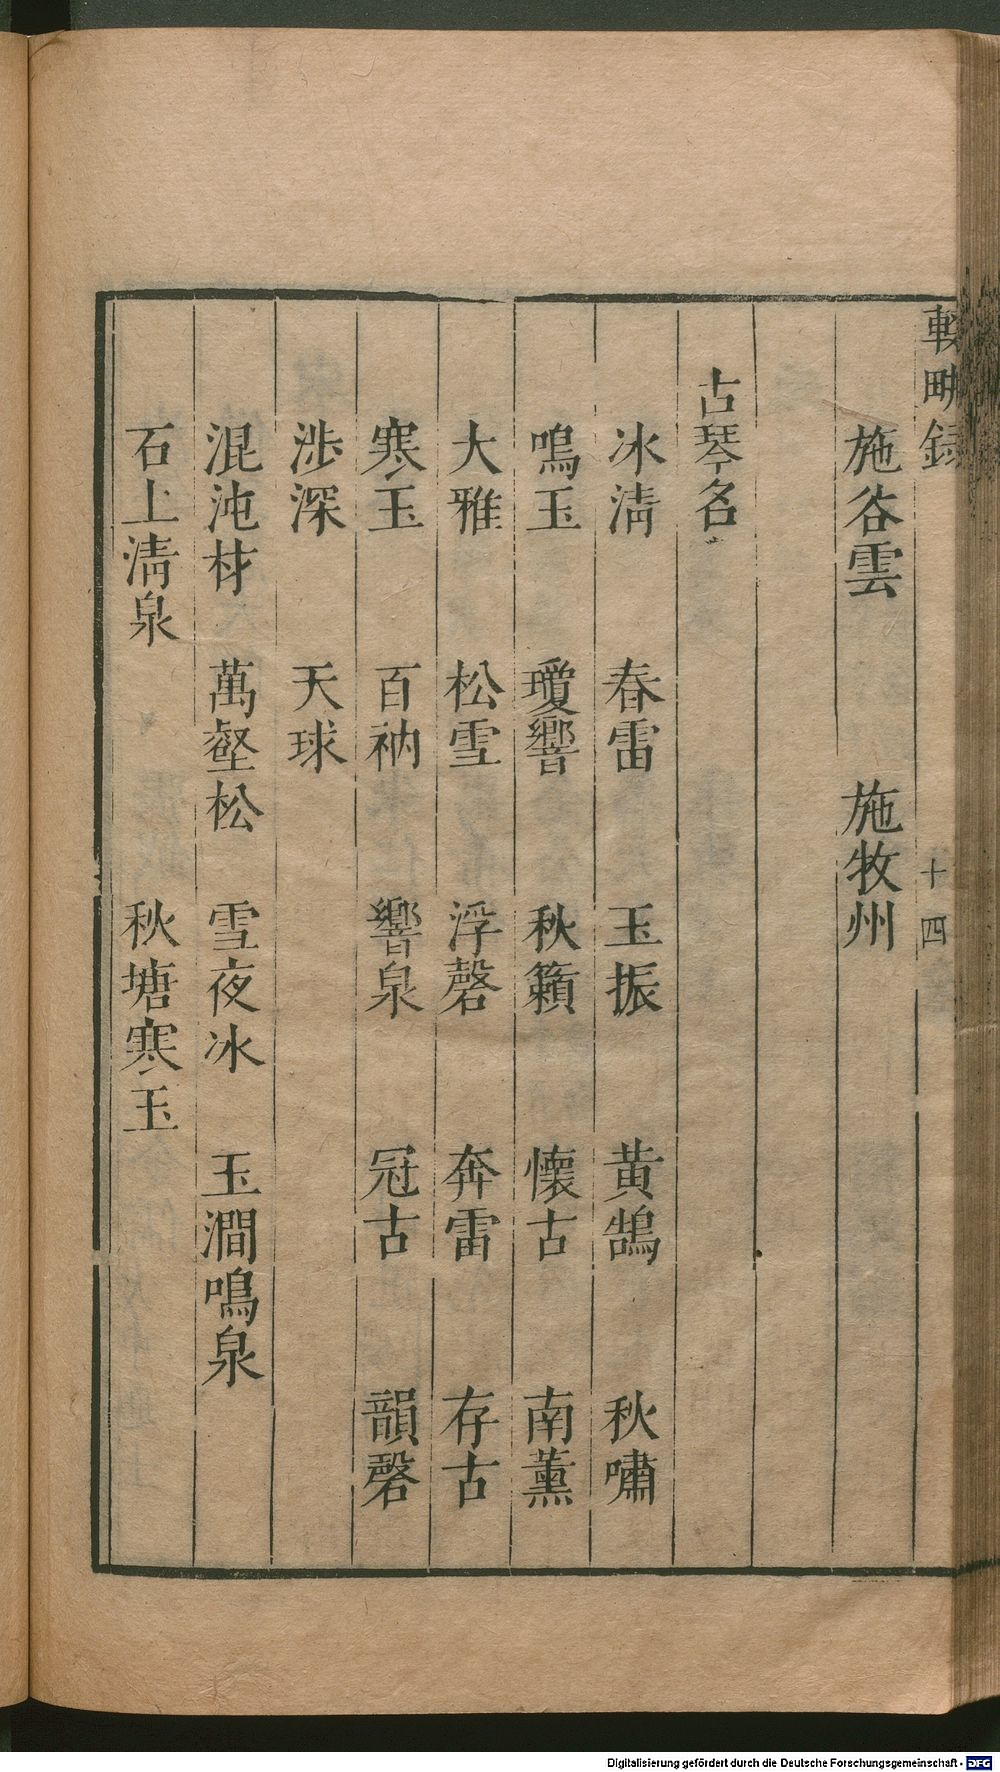 輟畊録
十四
施谷雲　施牧州
古琴名
冰淸　春雷　玉振　黄鵠　秋嘯
鳴玉　瓊響　秋籟　懷古　南薰
大雅　松雪　浮磬　奔雷　存古
寒玉　百衲　響泉　冠古　韻磬
涉深　天球
混沌材　萬壑松　雪夜冰　玉澗鳴泉
石上淸泉　秋塘寒玉
Digitalisierung gefördert durch die Deutsche Forschungsgemeinschaft - DFG